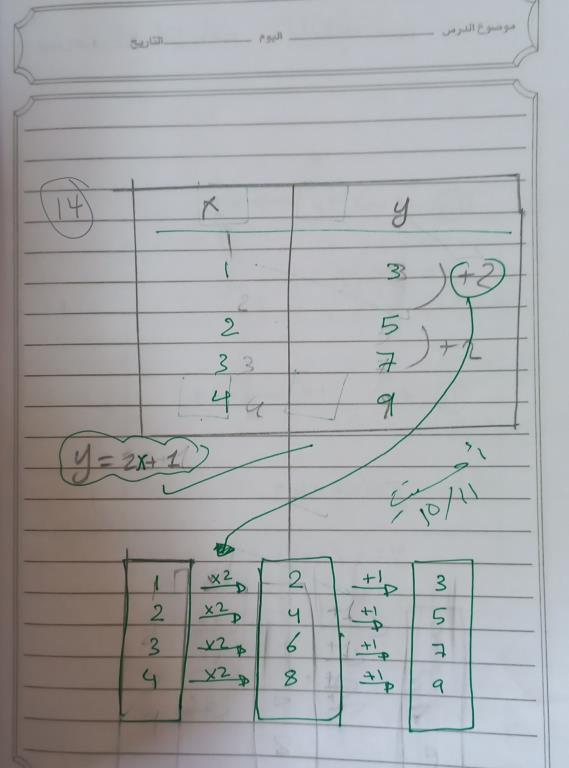 موضوع الدرس اليوم التاريخ
14
x y
1 3 +2
2 5
3 7 +2
4 9
y = 2x+1
10/11
1 x2 2 +1 3
2 x2 4 +1 5
3 x2 6 +1 7
4 x2 8 +1 9